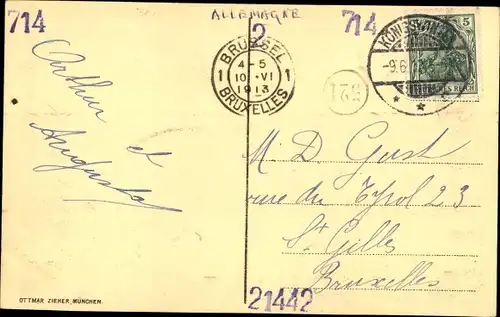 714
ALLEMAGNE
2
714
BRÜSSEL
4-5
1 10-VI 1
1913
BRUXELLES
KÖNIGSWINTER
-9.6.
5
REICH
521
Arthur et
Augusta
M. D. Gust
rue du Tyrol 23
St Gilles
Bruxelles
OTTMAR ZIEHER, MÜNCHEN.
21442